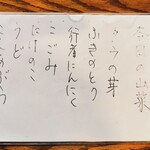 本日の山菜
タラの芽
ふきのとう
行者にんにく
こごみ
たけのこ
うど